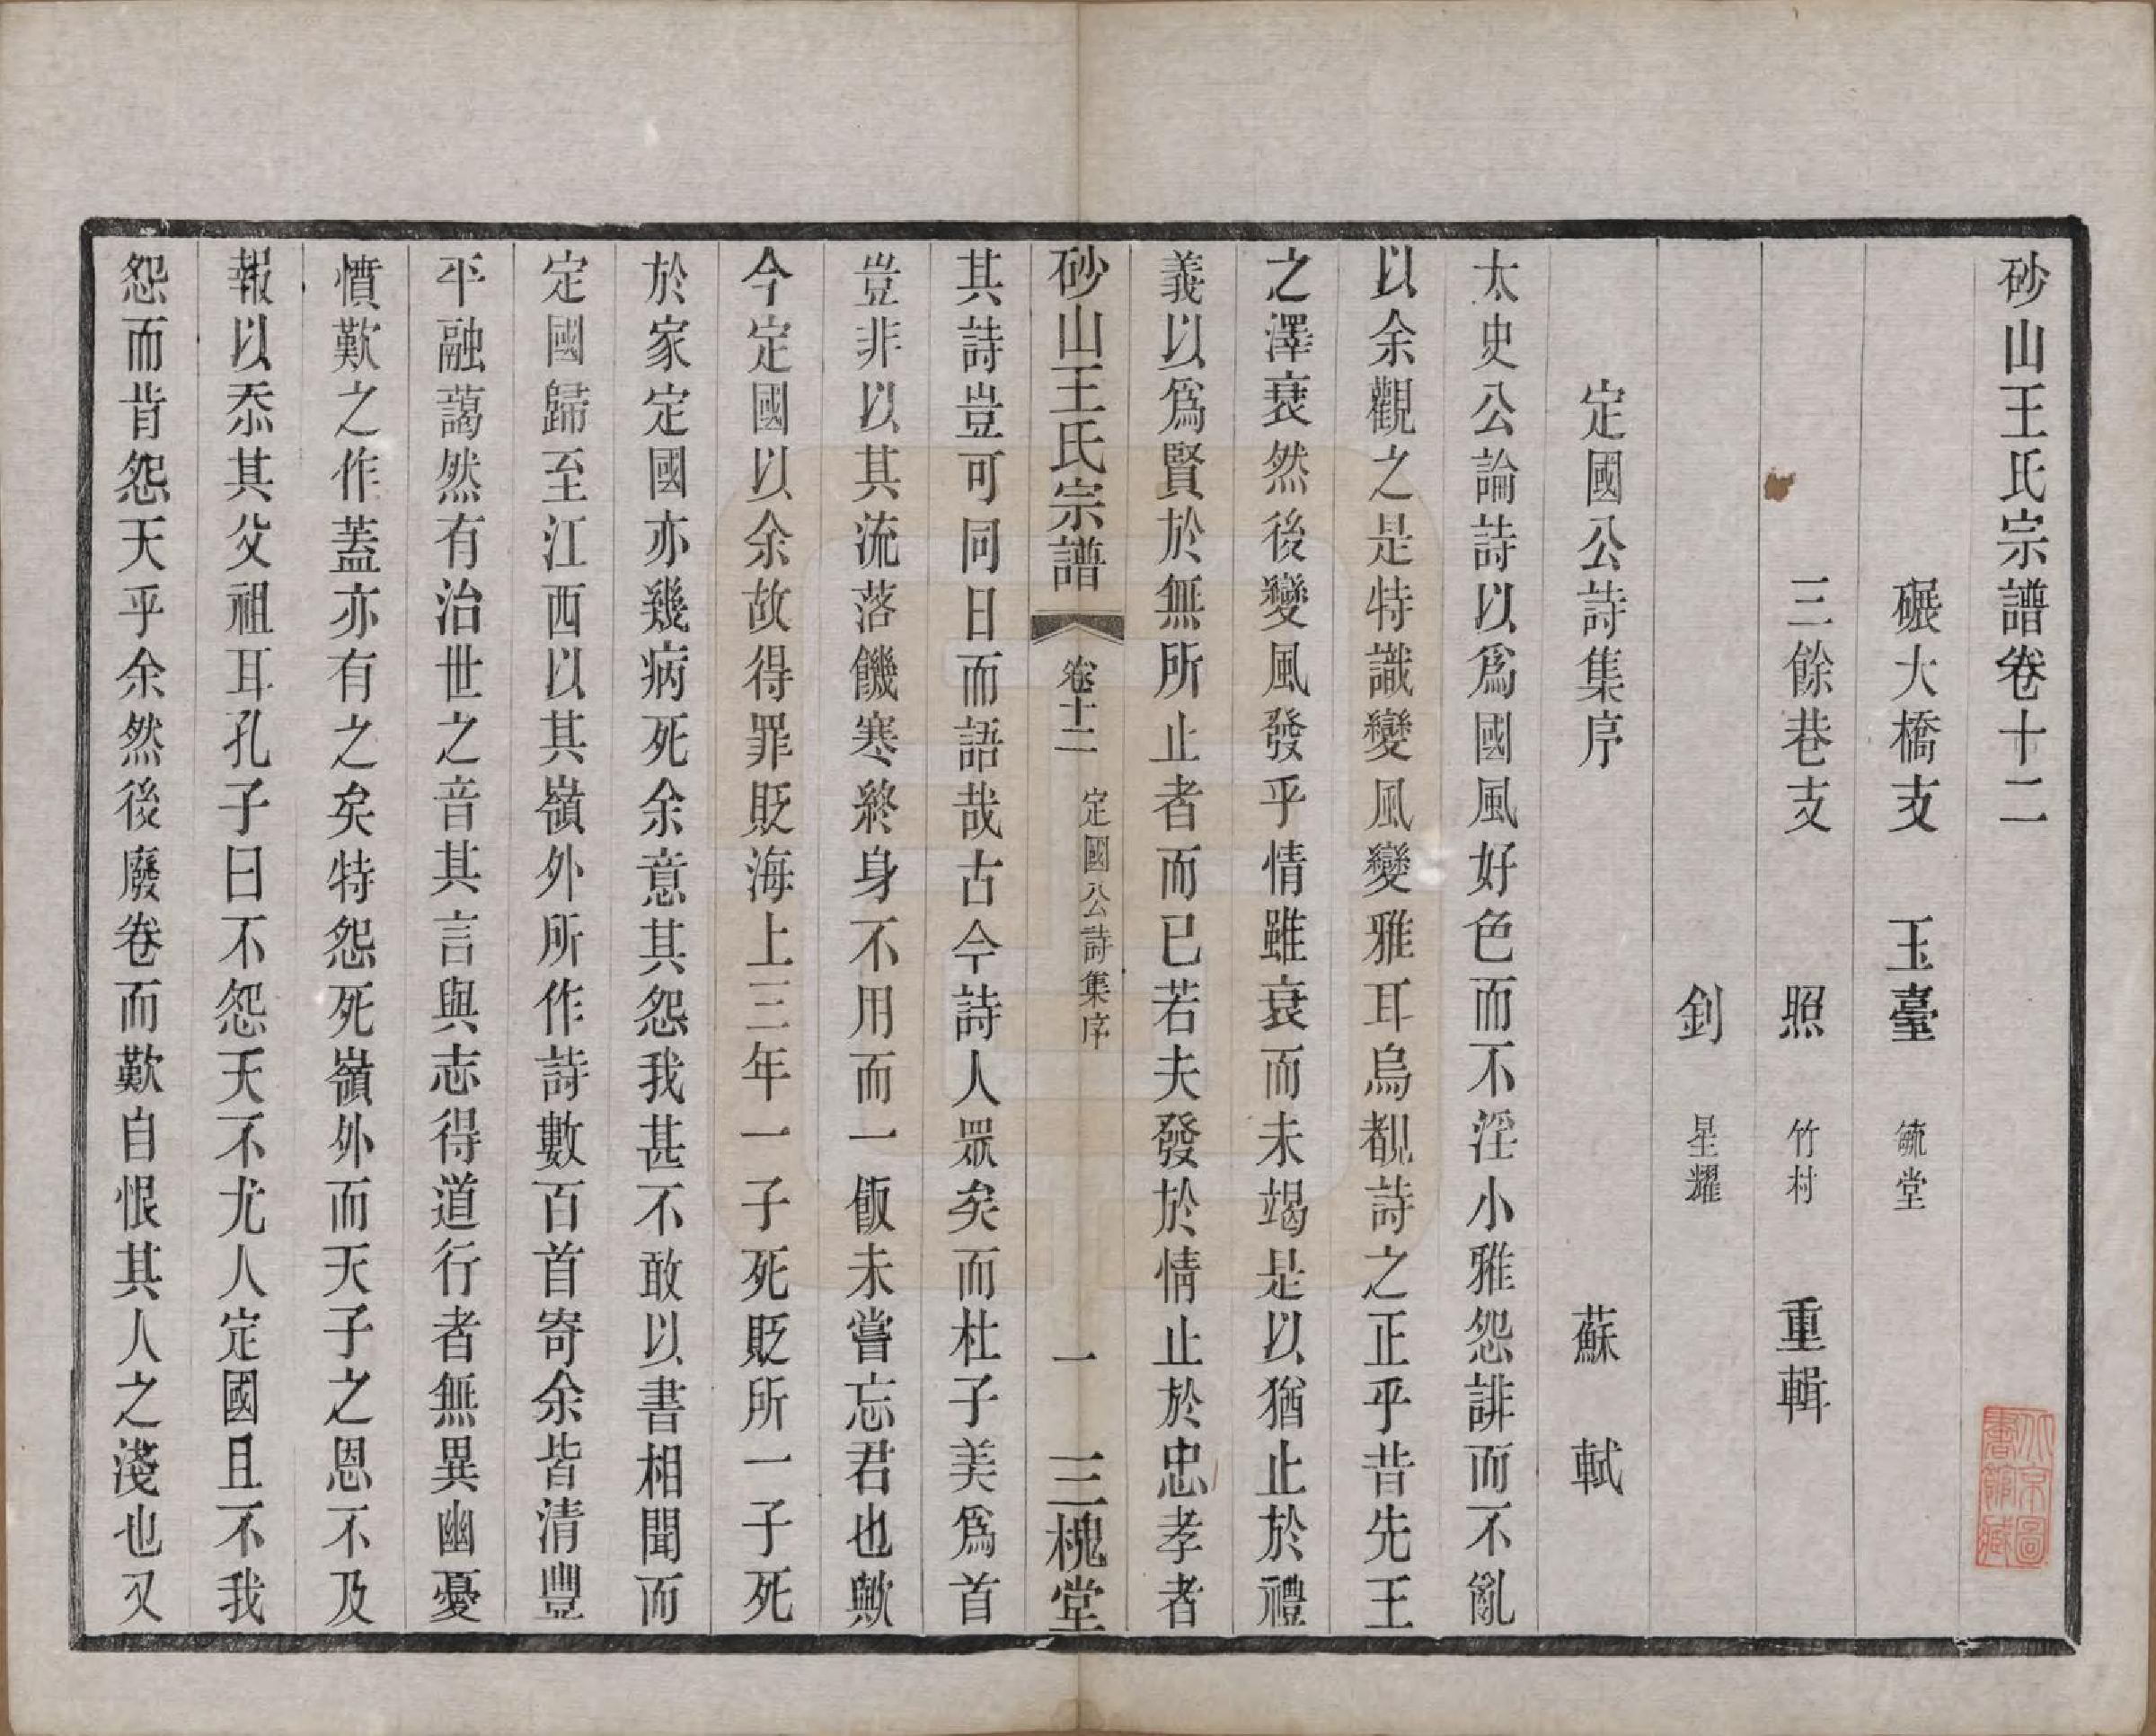 砂山王氏宗譜卷十二
碾大橋支　玉臺　毓堂
三餘巷支　照　竹村　重輯
釗　星耀
定國公詩集序　蘇軾
太史公論詩以爲國風好色而不淫小雅怨誹而不亂
以余觀之是特識變風變雅耳烏覩詩之正乎昔先王
之澤衰然後變風發乎情雖衰而未竭是以猶止於禮
義以爲賢於無所止者而已若夫發於情止於忠孝者
砂山王氏宗譜　卷十二　定國公詩集序　一　三槐堂
其詩豈可同日而語哉古今詩人眾矣而杜子美爲首
豈非以其流落饑寒終身不用而一飯未嘗忘君也歟
今定國以余故得罪貶海上三年一子死貶所一子死
於家定國亦幾病死余意其怨我甚不敢以書相聞而
定國歸至江西以其嶺外所作詩數百首寄余皆清豐
平融藹然有治世之音其言與志得道行者無異幽憂
憤歎之作蓋亦有之矣特怨死嶺外而天子之恩不及
報以忝其父祖耳孔子曰不怨天不尤人定國且不我
怨而肯怨天乎余然後廢卷而歎自恨其人之淺也又
大宗圖書館藏